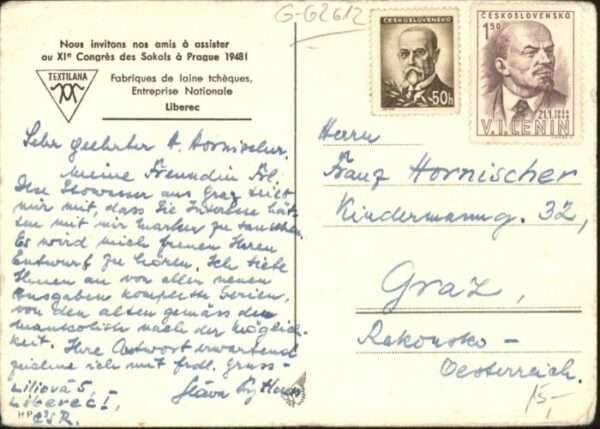 G-G2612
Nous invitons nos amis à assister
au XIe Congrès des Sokols à Prague 1948!
TEXTILANA
Fabriques de laine tchèques,
Entreprise Nationale
Liberec
ČESKOSLOVENSKO
50h
ČESKOSLOVENSKO
1.50
V.I.LENIN
Sehr geehrter H. Hornischer,
Meine Freundin Frl.
Ilse aus Graz teilt
mir mit, dass Sie Interesse hät-
ten mit mir Marken zu tauschen.
Es wird mich freuen Ihren
Entwurf zu hören. Ich biete
Ihnen an von allen neuen
Ausgaben komplette Serien,
von den alten gemäss der
Mankoliste nach der Möglich-
keit. Ihre Antwort erwartend
zeichne ich mit frdl. Gruss-
Liliová 5
Liberec I,
ČSR.
Herrn
Franz Hornischer
Kindermanng. 32,
Graz,
Rakousko-
Oesterreich.
15,-